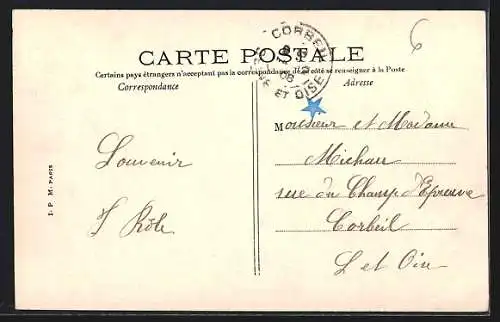 6
CORBEIL
ET OISE
CARTE POSTALE
Certains pays étrangers n'acceptant pas la correspondance de ce côté se renseigner à la Poste
Correspondance
Adresse
Monsieur et Madame
Michau
rue du Champ d'Epreuve
Corbeil
S et Oise
Souvenir
I. P. M. PARIS